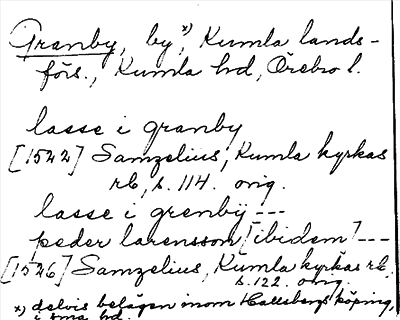 Granby, by,ˣ⁾ Kumla lands-
förs., Kumla hd, Örebro l.
lasse i granby
[1522] Samzelius, Kumla kyrkas
rb, s. 114. orig.
lasse i grenbÿ ---
peder larensson [ibidem] ---
[1526] Samzelius, Kumla kyrkas rb,
s. 122. orig.
x) delvis belägen inom Hallsbergs köping,
i sma hd.